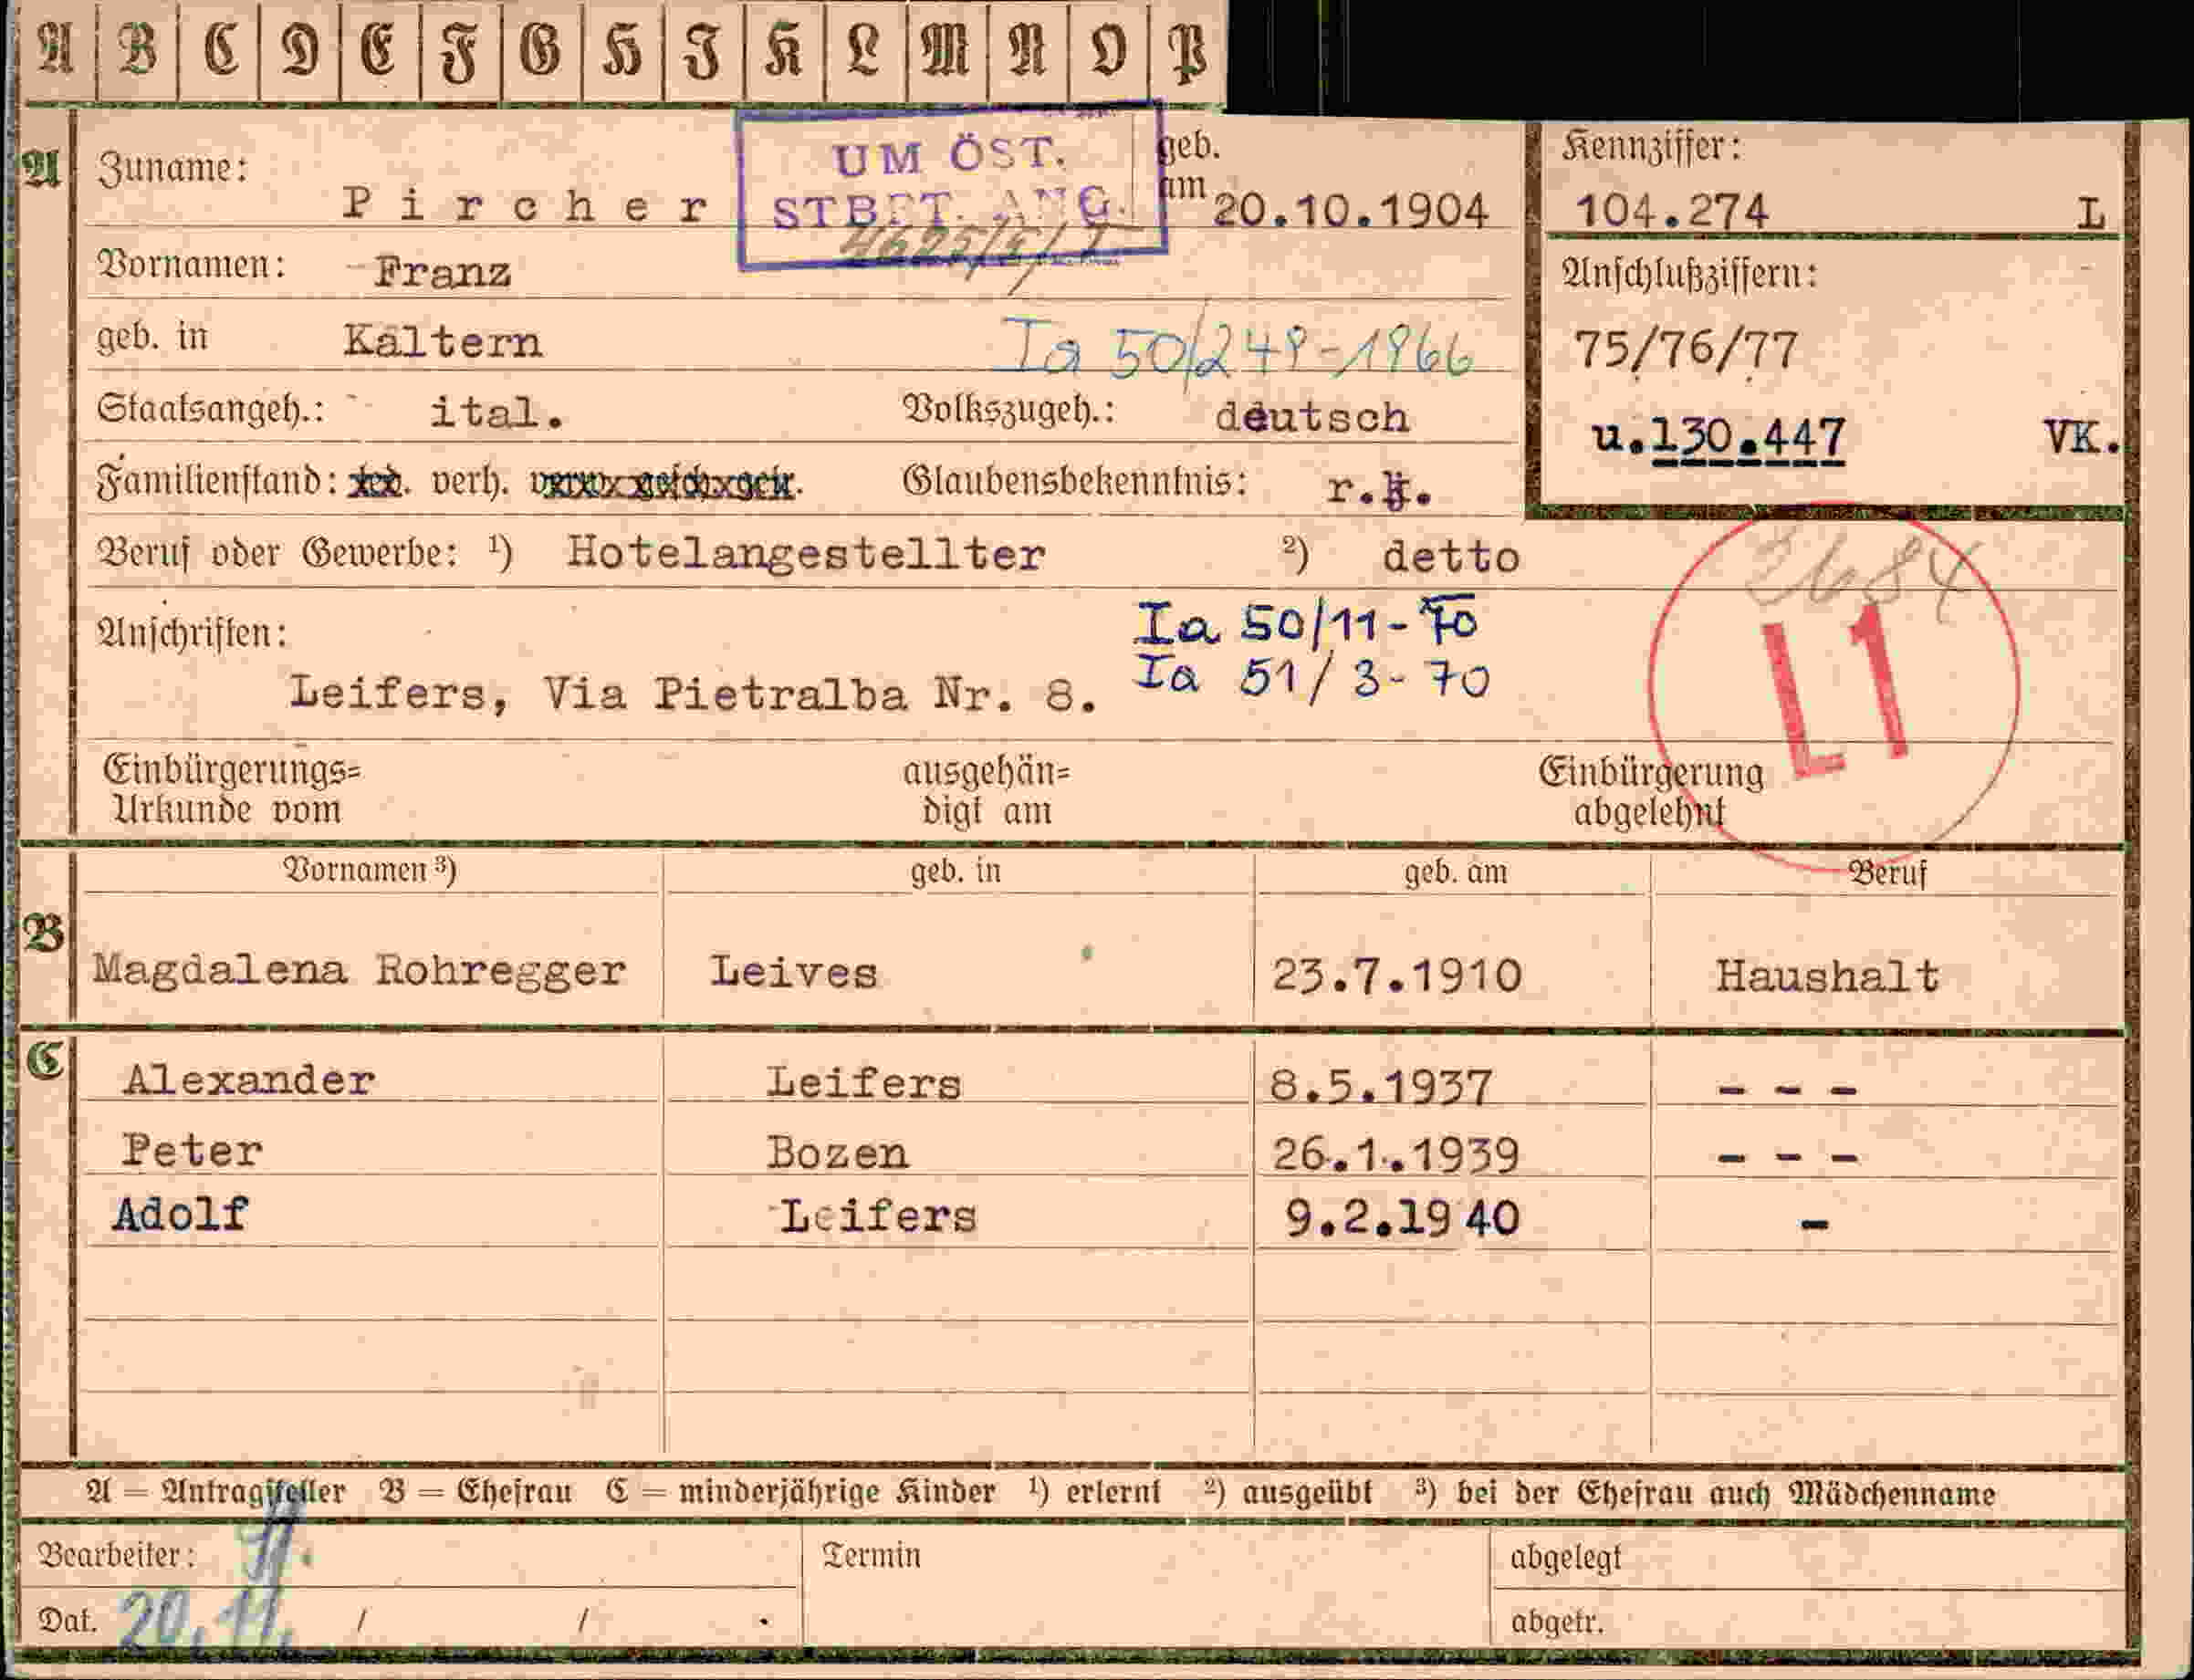 A B C D E F G H I K L M N O P
A
Zuname: Pircher
UM ÖST.
STBET. ANG.
geb. am 20.10.1904
Kennziffer:
104.274 L
Vornamen: Franz
Anschlußziffern:
75/76/77
u.130.447 VK.
geb. in Kaltern
Ia 50/249-1966
Staatsangeh.: ital. Volkszugeh.: deutsch
Familienstand: verh. Glaubensbekenntnis: r.k.
Beruf oder Gewerbe: ¹) Hotelangestellter ²) detto
2684
L1
Anschriften:
Ia 50/11-70
Ia 51/3-70
Leifers, Via Pietralba Nr. 8.
Einbürgerungs= ausgehän= Einbürgerung
Urkunde vom digt am abgelehnt
Vornamen ³) geb. in geb. am Beruf
B
Magdalena Rohregger Leives 23.7.1910 Haushalt
C
Alexander Leifers 8.5.1937 - - -
Peter Bozen 26.1.1939 - - -
Adolf Leifers 9.2.1940 -
A = Antragsteller B = Ehefrau C = minderjährige Kinder ¹) erlernt ²) ausgeübt ³) bei der Ehefrau auch Mädchenname
Bearbeiter: Termin abgelegt
Dat. 20.11. / / . abgetr.